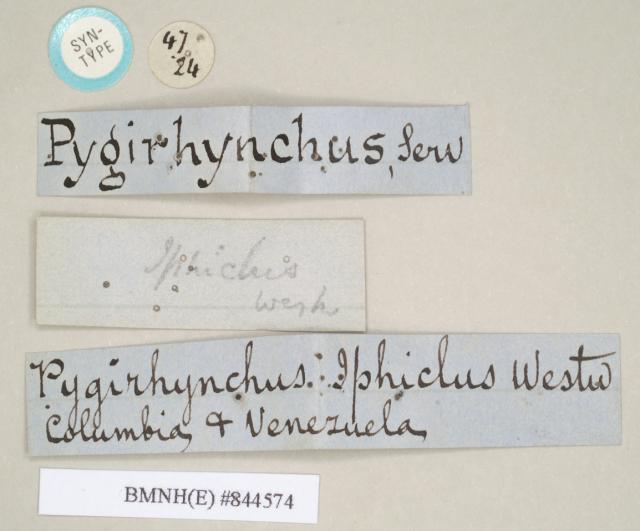 SYN-
TYPE
47
24
Pygirhynchus, Serv
Iphiclus
Westw
Pygirhynchus. Iphiclus Westw
Columbia & Venezuela
BMNH(E) #844574